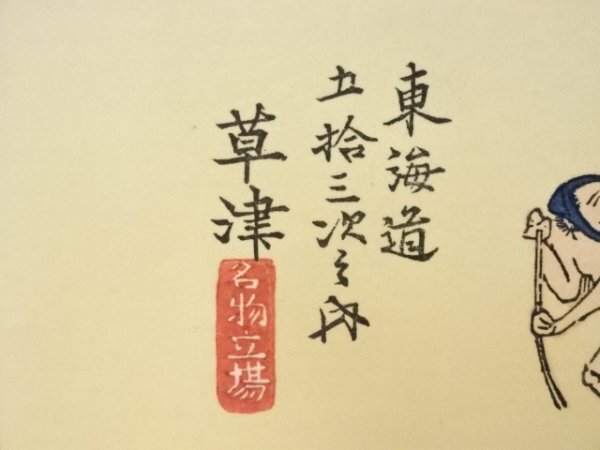 東海道
五拾三次之内
草津
名物立場